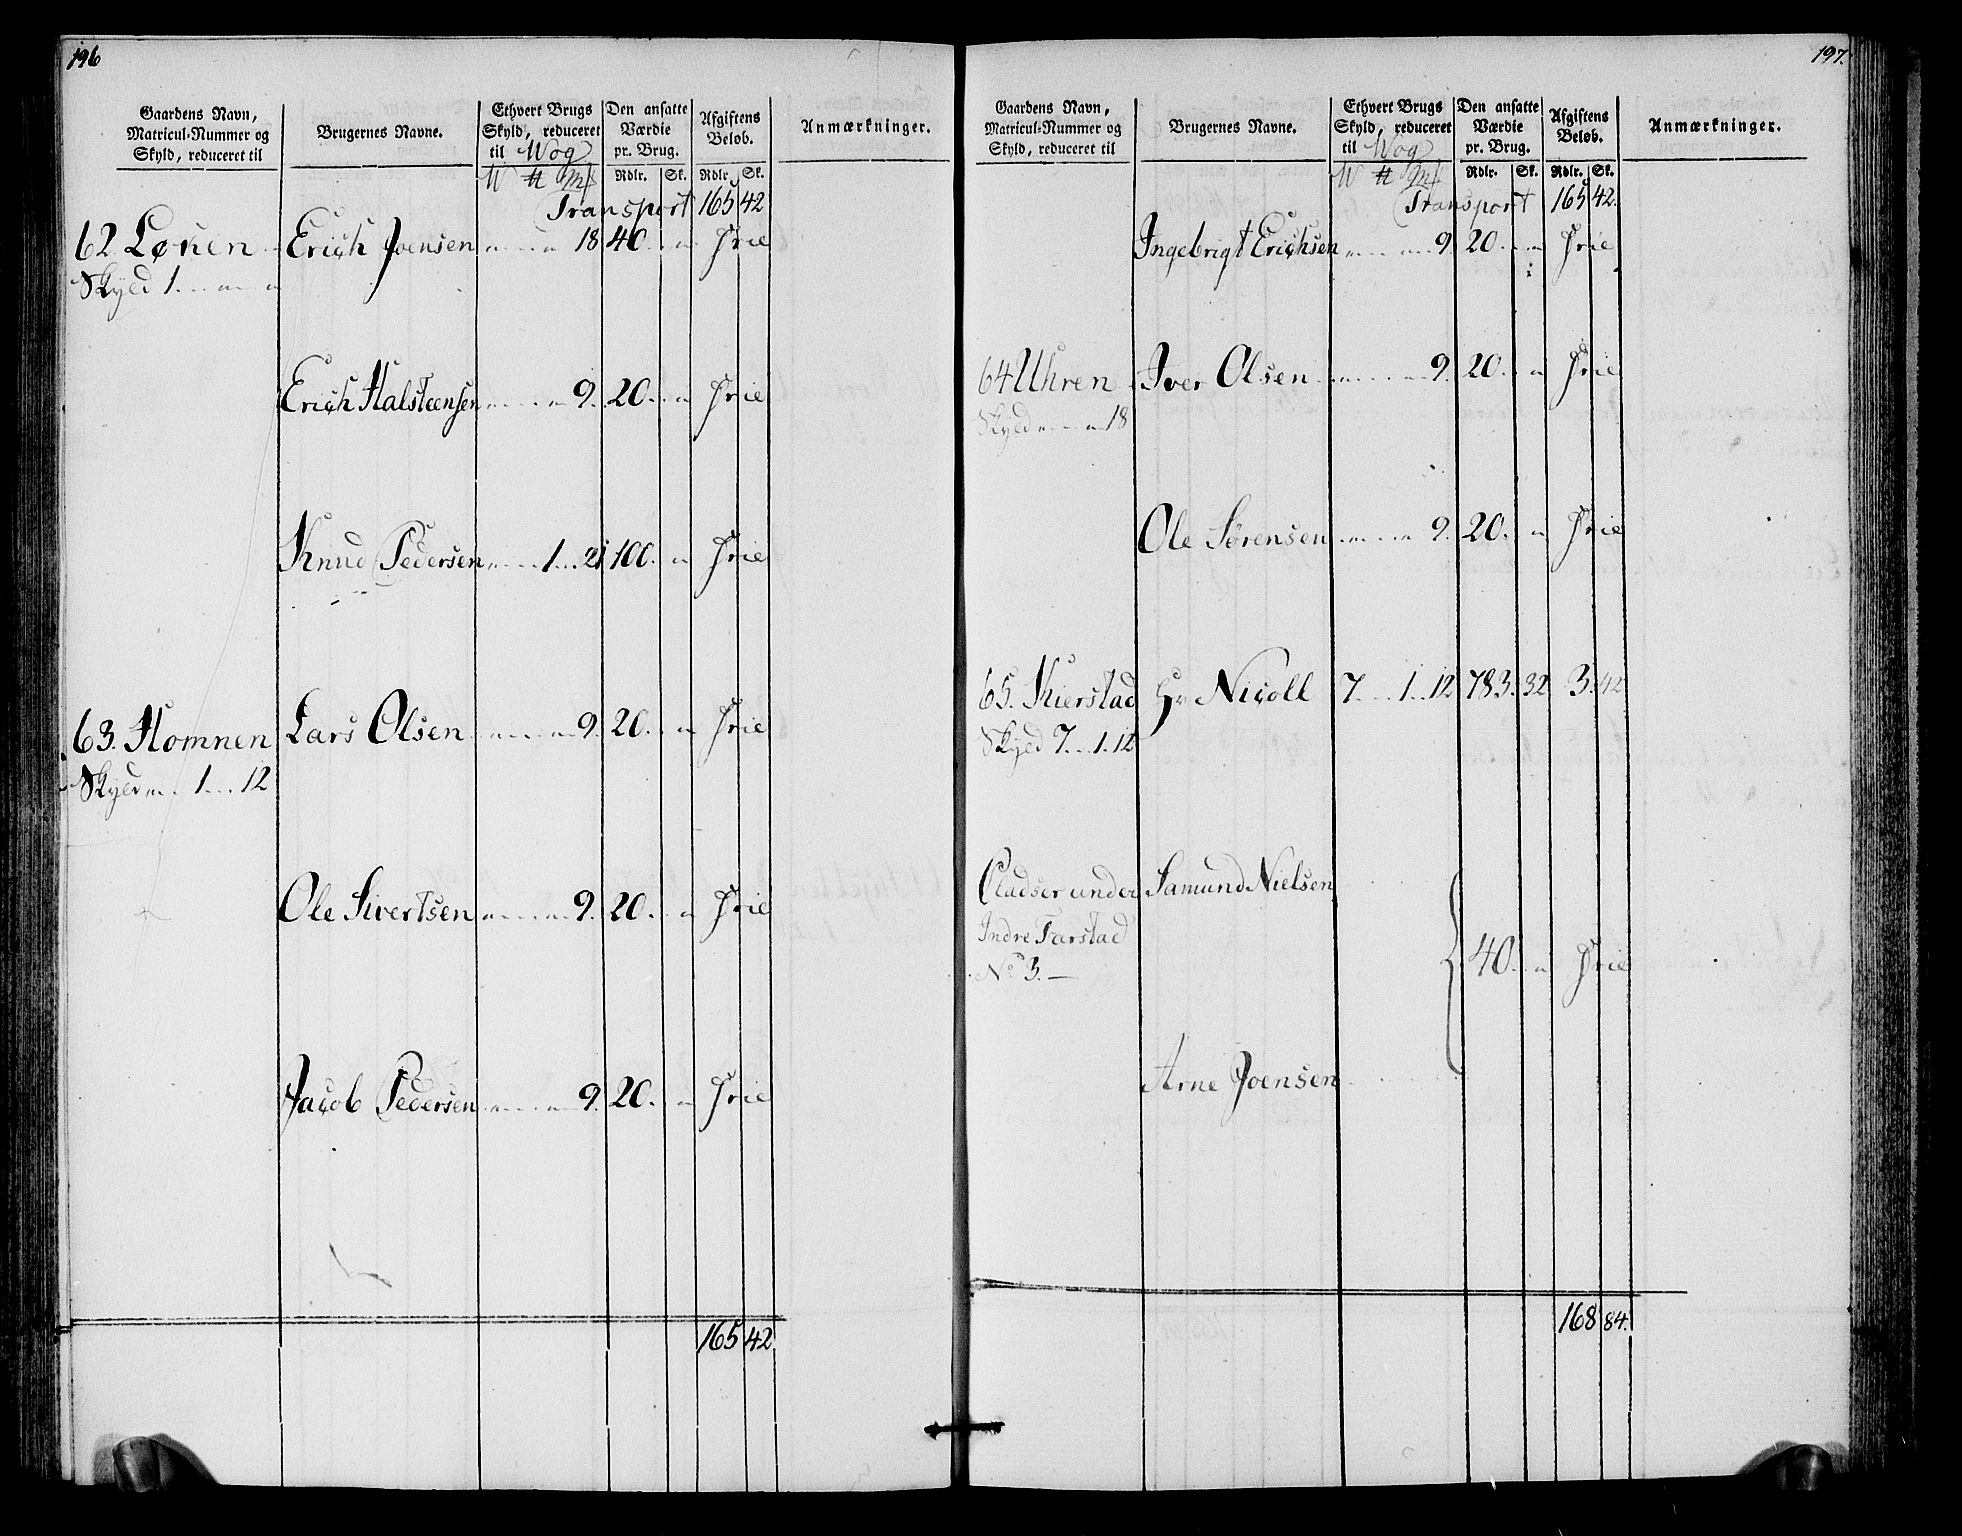 196
Gaardens Navn, Matricul-Nummer og Skyld, reduceret til
Brugernes Navne.
Ethvert Brugs Skyld, reduceret til Wog
Den ansatte Værdie pr. Brug.
Afgiftens Beløb.
Anmærkninger.
W ℔ Mk Rdlr. Sk. Rdlr. Sk.
Transport 165 42
62. Lønen Erich Joensen 18 40 Frie
Skyld 1
Erich Halsteensen 9. 20. Frie
Knud Pedersen 1 21 100. Frie
63. Homnen Lars Olsen 9. 20. Frie
Skyld 1 12
Ole Sivertsen 9. 20. Frie
Jacob Pedersen 9. 20. Frie
165 42
197.
Gaardens Navn, Matricul-Nummer og Skyld, reduceret til
Brugernes Navne.
Ethvert Brugs Skyld, reduceret til Wog
Den ansatte Værdie pr. Brug.
Afgiftens Beløb.
Anmærkninger.
W ℔ Mk Rdlr. Sk. Rdlr. Sk.
Transport 165 42.
Ingebrigt Erichsen 9. 20. Frie
64 Uhren Iver Olsen 9. 20. Frie
Skyld 18
Ole Sørensen 9. 20. Frie
65. Kierstad Hr Nicoll 7. 1. 12 783. 32 3. 42
Skyld 7. 1. 12
Pladser under Samund Nielsen
Indre Farstad
No 3. — 40. Frie
Arne Joensen
168 84.